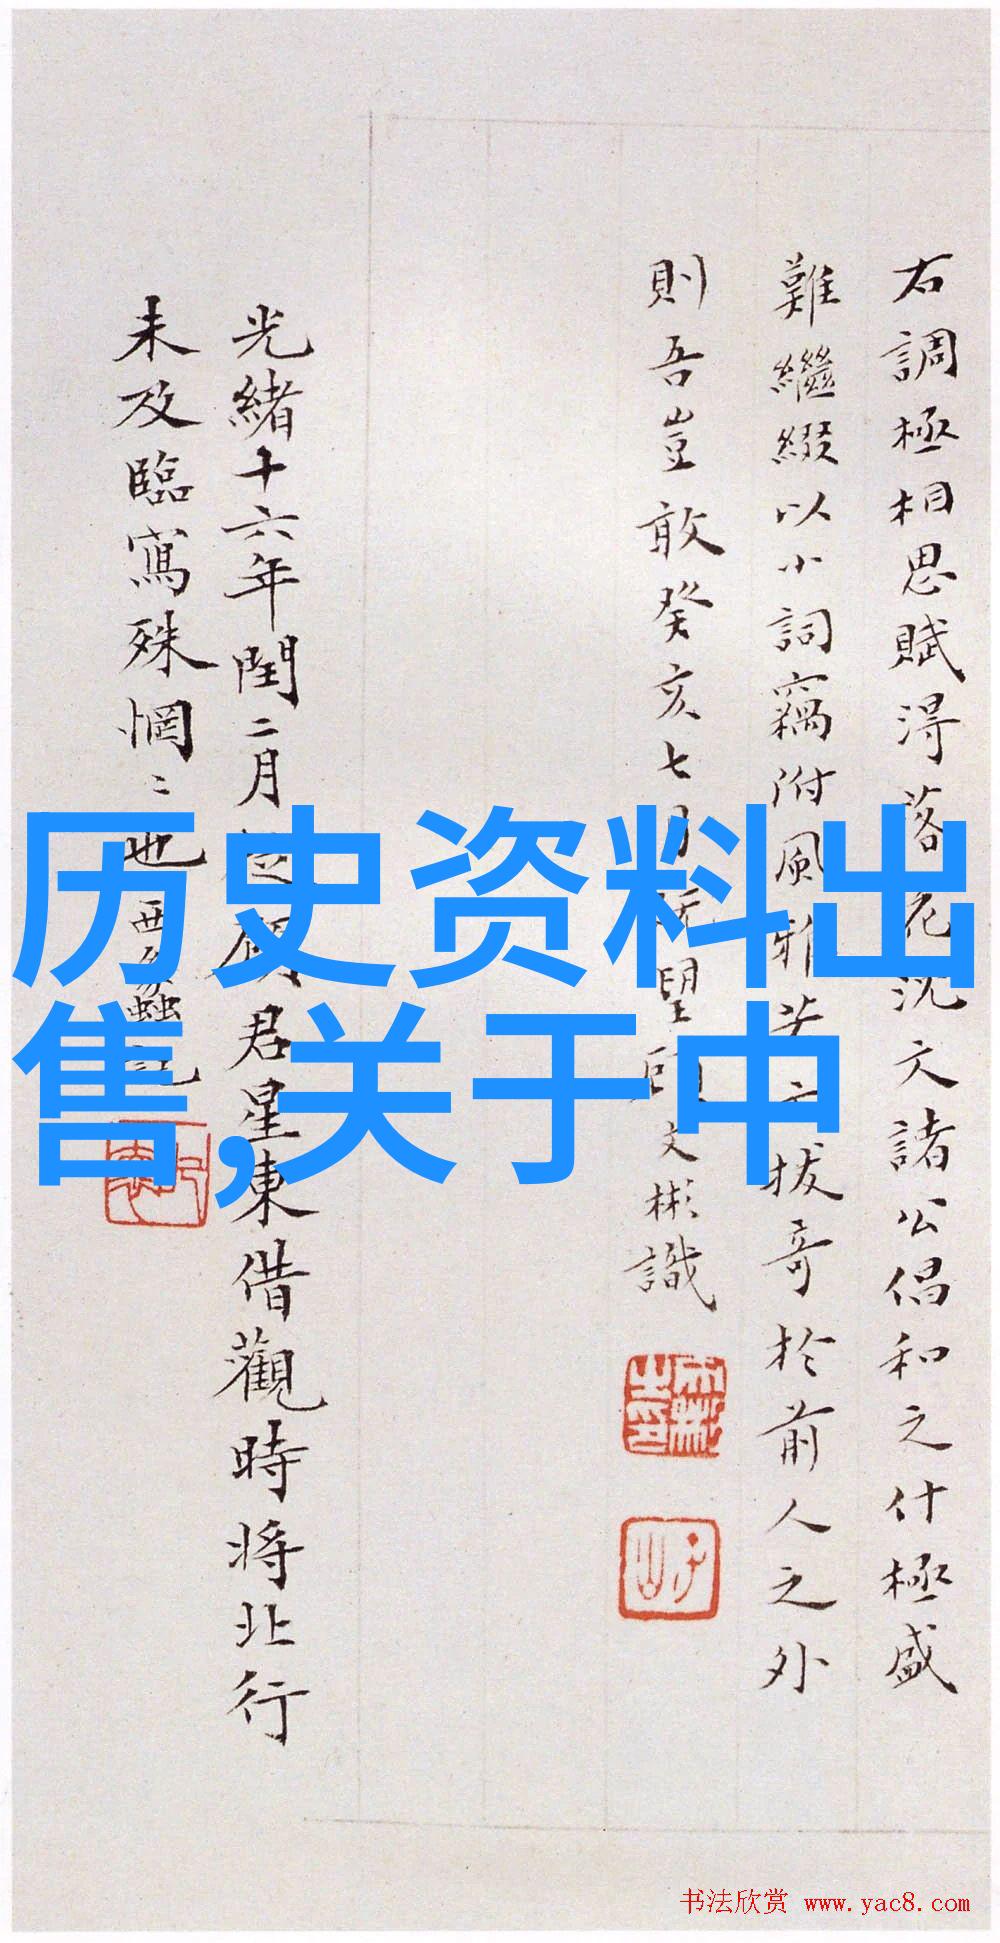 右調極相思賦得落花沈文諸公倡和之什極盛
難繼綴以小詞竊附風雅若云拔奇於前人之外
則吾豈敢癸亥七月既望 文彬識
光緒十六年閏二月 顧君星東借觀時將北行
未及臨寫殊惘〻也 西蠡記
历史资料出
售,关于中
书法欣赏 www.yac8.com